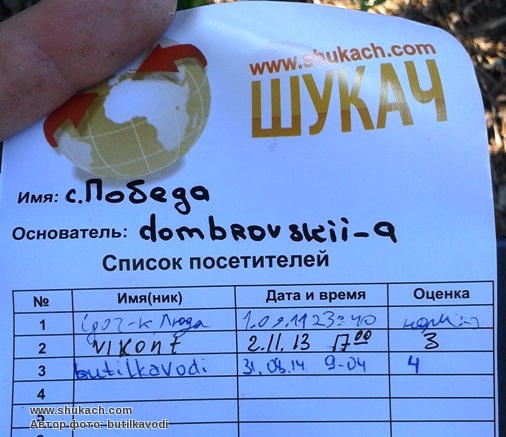 www.shukach.com
ШУКАЧ
Имя: с.Победа
Основатель: dombrovskii-a
Список посетителей
№ Имя(ник) Дата и время Оценка
1 igor-k Люда
2 VIKONT 2.11.13 17 00 3
3 butilkavodi 31.08.14 9-04 4
4
www.shukach.com
Автор фото: butilkavodi